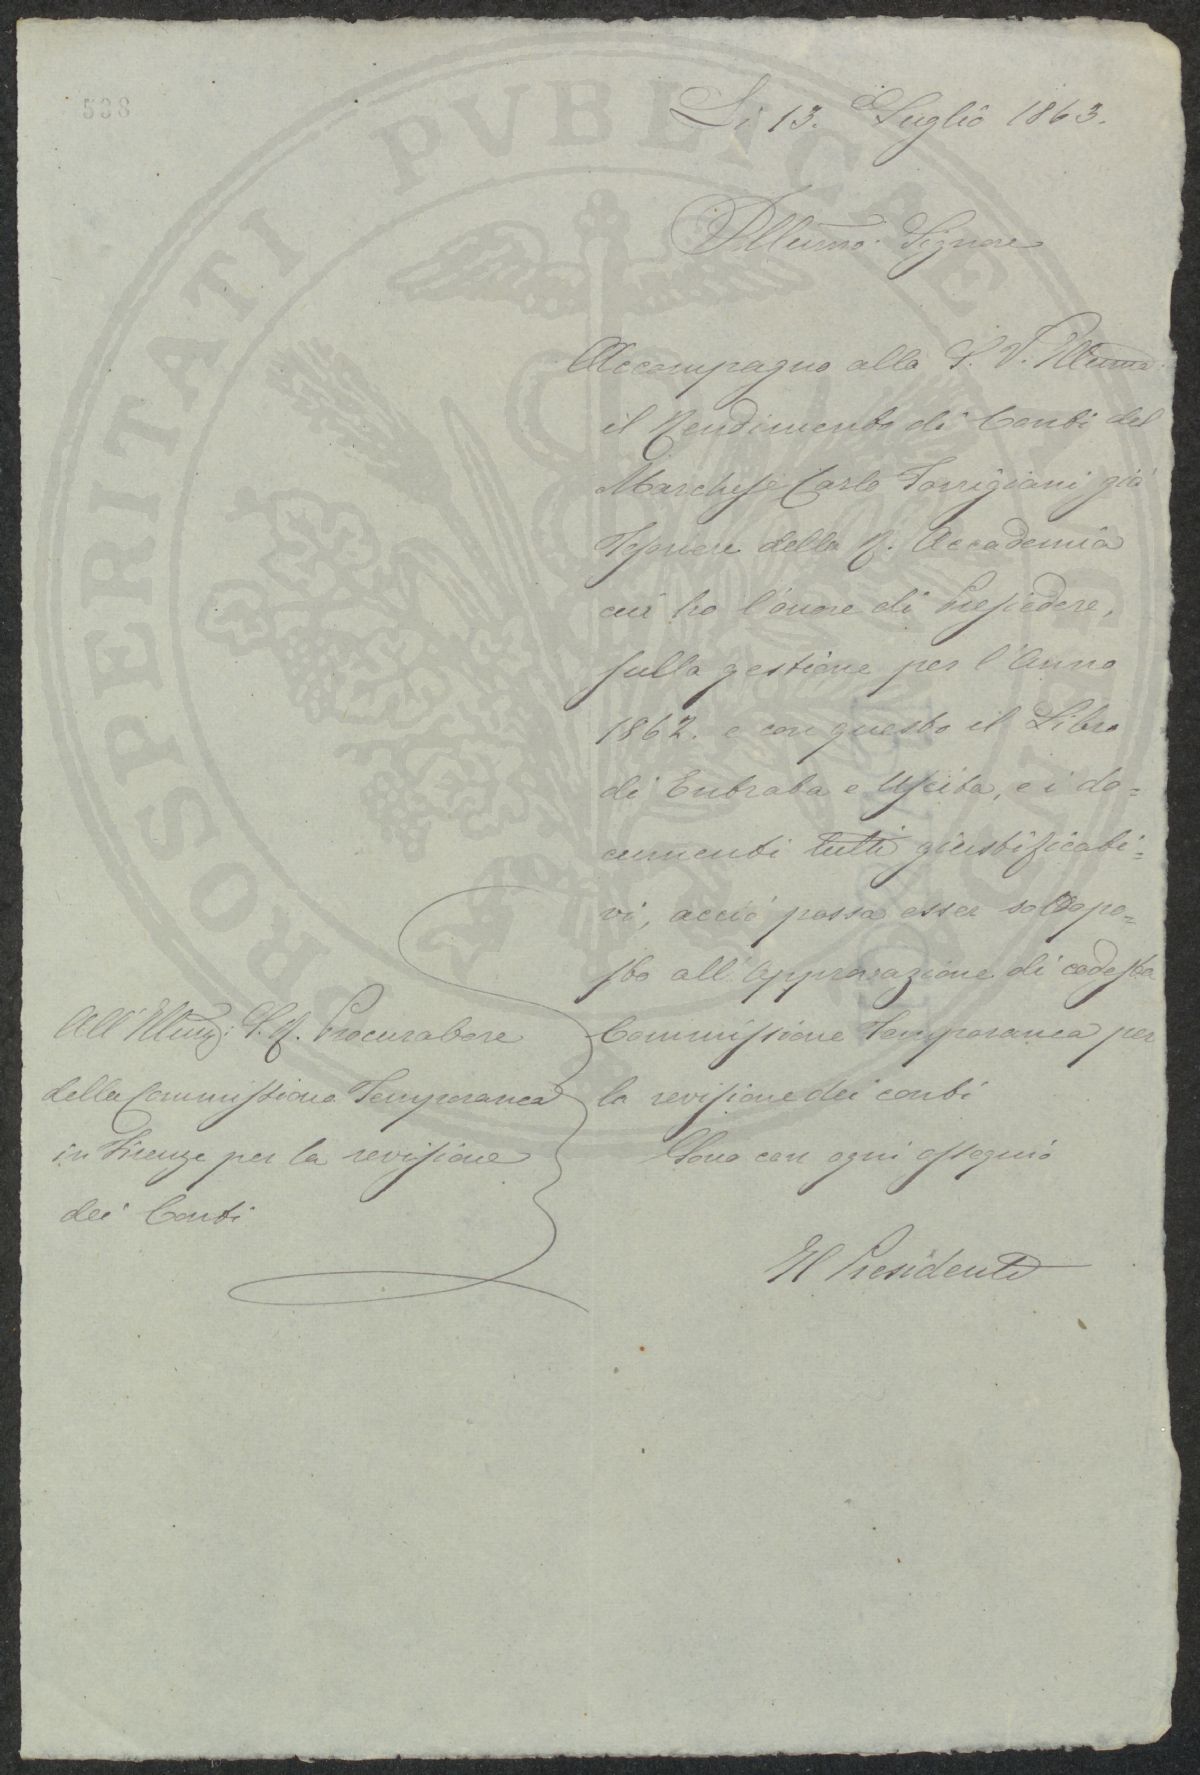 538
Li 13. Luglio 1863.
Illumo. Signore
Accompagno alla S. V. Illuma.
il Rendimento di Conti del
Marchese Carlo Torrigiani già
Tesoriere della R. Accademia
cui ho l'onore di Presiedere,
sulla gestione per l'Anno
1862. e con questo il Libro
di Entrata e Uscita, e i do=
cumenti tutti giustificati=
vi, acciò possa esser sottopo=
sto all'Approvazione di codesta
Commissione Temporanea per
la revisione dei conti
Sono con ogni ossequio
Il Presidente
All' Illmo: S. R. Procuratore
della Commissione Temporanea
in Firenze per la revisione
dei Conti
PROSPERITATI PVBLICAE